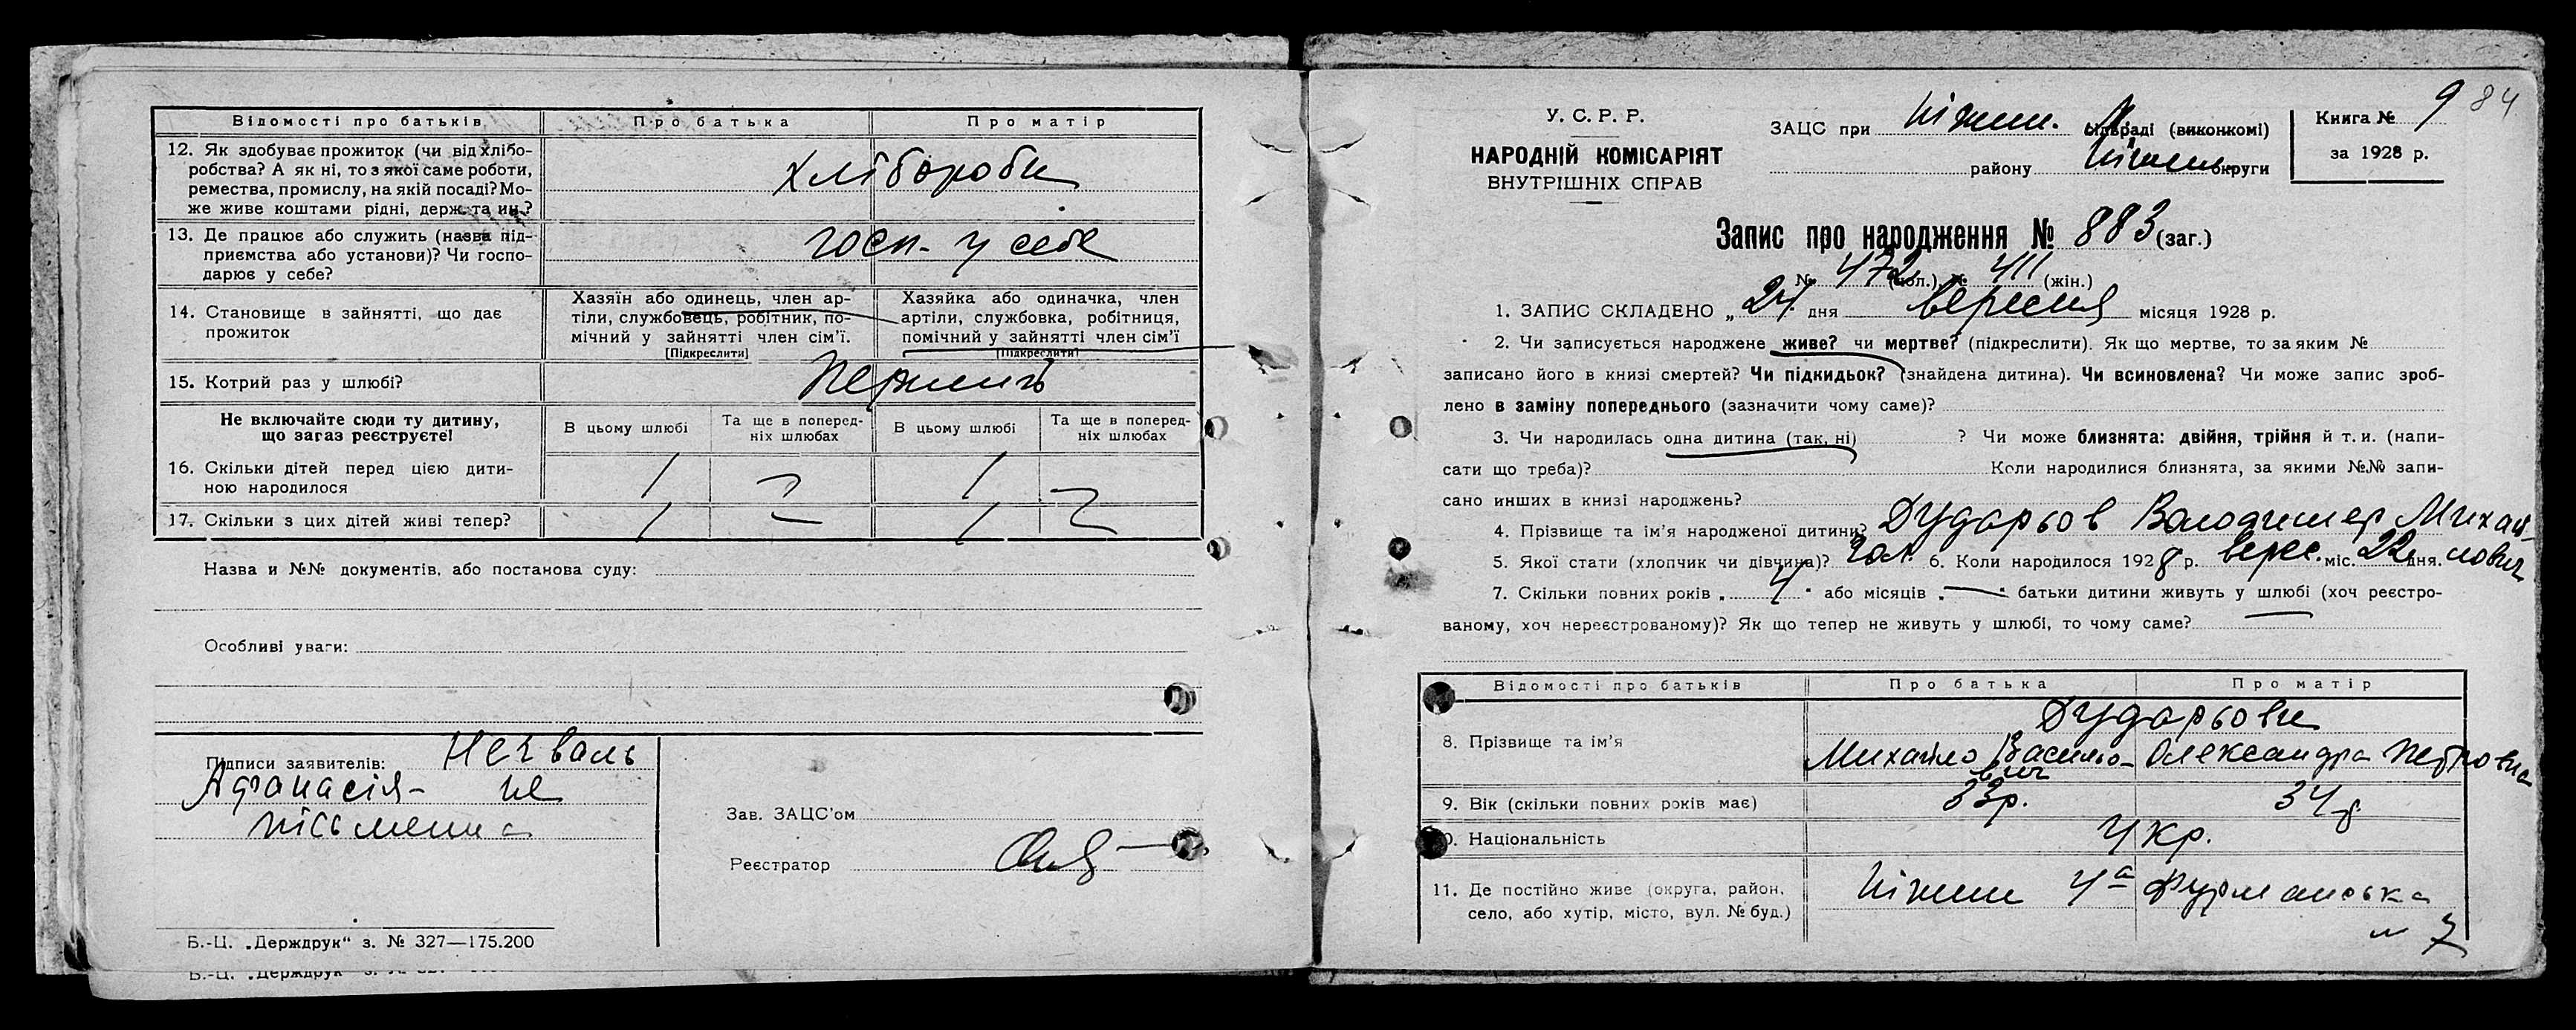 Відомості про батьків Про батька Про матір
12. Як здобуває прожиток (чи від хлібо-
робства? А як ні, то з якої саме роботи,
ремества, промислу, на якій посаді? Мо-
же живе коштами рідні, держ. та ин.?
хлібороби
13. Де працює або служить (назва під-
приємства або установи)? Чи госпо-
дарює у себе?
госп. у себе
14. Становище в зайнятті, що дає
прожиток
Хазяїн або одинець, член ар-
тіли, службовець, робітник, по-
мічний у зайнятті член сім'ї.
[Підкреслити]
Хазяйка або одиначка, член
артіли, службовка, робітниця,
помічний у зайнятті член сім'ї
[Підкреслити]
15. Котрий раз у шлюбі?
Не включайте сюди ту дитину,
що зараз реєструєте!
В цьому шлюбі
Та ще в поперед-
ніх шлюбах
В цьому шлюбі
Та ще в поперед-
ніх шлюбах
16. Скільки дітей перед цією дити-
ною народилося
1 1
17. Скільки з цих дітей живі тепер?
1 1
Назва и №№ документів, або постанова суду:
Особливі уваги:
Підписи заявителів: Нечваль
Афанасія - не
письменна
Зав. ЗАЦС'ом
Реєстратор
Б.-Ц. „Держдрук“ з. № 327—175.200
Б.-Ц. „Держдрук“
84
У. С. Р. Р.
НАРОДНІЙ КОМІСАРІЯТ
ВНУТРІШНІХ СПРАВ
ЗАЦС при Ніжин. (виконкомі)
району Ніжин. округи
Книга № 9
за 1928 р.
Запис про народження № 883 (заг.)
№ 472 (чол.), № 411 (жін.)
1. ЗАПИС СКЛАДЕНО „ 24 дня вересня місяця 1928 р.
2. Чи записується народжене живе? чи мертве? (підкреслити). Як що мертве, то за яким №
записано його в книзі смертей? Чи підкидьок? (знайдена дитина). Чи всиновлена? Чи може запис зроб-
лено в заміну попереднього (зазначити чому саме)?
3. Чи народилась одна дитина (так, ні) ? Чи може близнята: двійня, трійня й т. и. (напи-
сати що треба)? Коли народилися близнята, за якими №№ запи-
сано инших в книзі народжень?
4. Прізвище та ім'я народженої дитини? Дударьов Володимер Михай-
лович
5. Якої стати (хлопчик чи дівчина)? чол. 6. Коли народилося 1928 р. верес. міс. 22 дня.
7. Скільки повних років „ 4 " або місяців „ — " батьки дитини живуть у шлюбі (хоч реєстро-
ваному, хоч нереєстрованому)? Як що тепер не живуть у шлюбі, то чому саме?
Відомості про батьків Про батька Про матір
8. Прізвище та ім'я
Дударьови
Михайло Васильо-
вич
Олександра Петровна
9. Вік (скільки повних років має) 33 р. 34 р
10. Національність Укр.
11. Де постійно живе (округа, район,
село, або хутір, місто, вул. № буд.)
Ніжин 4а Фурманська
7